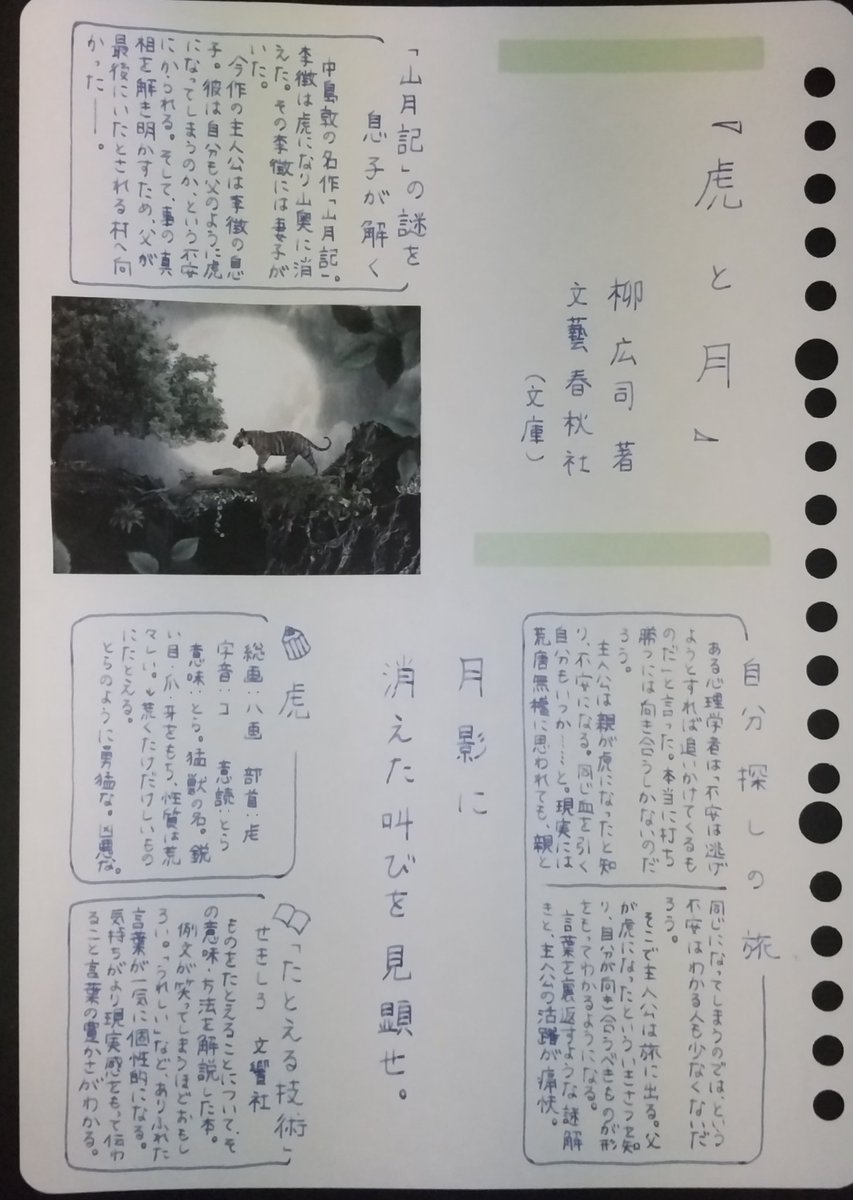 『虎と月』
柳広司 著
文藝春秋社
（文庫）
「山月記」の謎を
息子が解く
中島敦の名作「山月記」。
李徴は虎になり山奥に消
えた。その李徴には妻子が
いた。
今作の主人公は李徴の息
子。彼は自分も父のように虎
になってしまうのか、という不安
にかられる。そして、事の真
相を解き明かすため、父が
最後にいたとされる村へ向
かった――。
自分探しの旅
ある心理学者は「不安は逃げ
ようとすれば追いかけてくるも
のだ」と言った。本当に打ち
勝つには向き合うしかないのだ
ろう。
主人公は親が虎になったと知
り、不安になる。同じ血を引く
自分もいつか……と。現実には
荒唐無稽に思われても、親と
同じになってしまうのでは、という
不安はわかる人も少なくないだ
ろう。
そこで主人公は旅に出る。父
が虎になったといういきさつを知
り、自分が向き合うべきものが形
をもってわかるようになる。
言葉を裏返すような謎解
きと、主人公の活躍が痛快。
月影に
消えた叫びを見顕せ。
虎
総画：八画 部首：虍
字音：コ 意読：とら
意味：とら。猛獣の名。鋭
い目・爪・牙をもち、性質は荒
々しい。↓荒くたけだけしいもの
にたとえる。
とらのように勇猛な。凶悪な。
「たとえる技術」
せきしろ 文響社
ものをたとえることについて、そ
の意味・方法を解説した本。
例文が笑ってしまうほどおもし
ろい。「うれしい」など、ありふれた
言葉が一気に個性的になる。
気持ちがより現実感をもって伝わ
ること、言葉の豊かさがわかる。